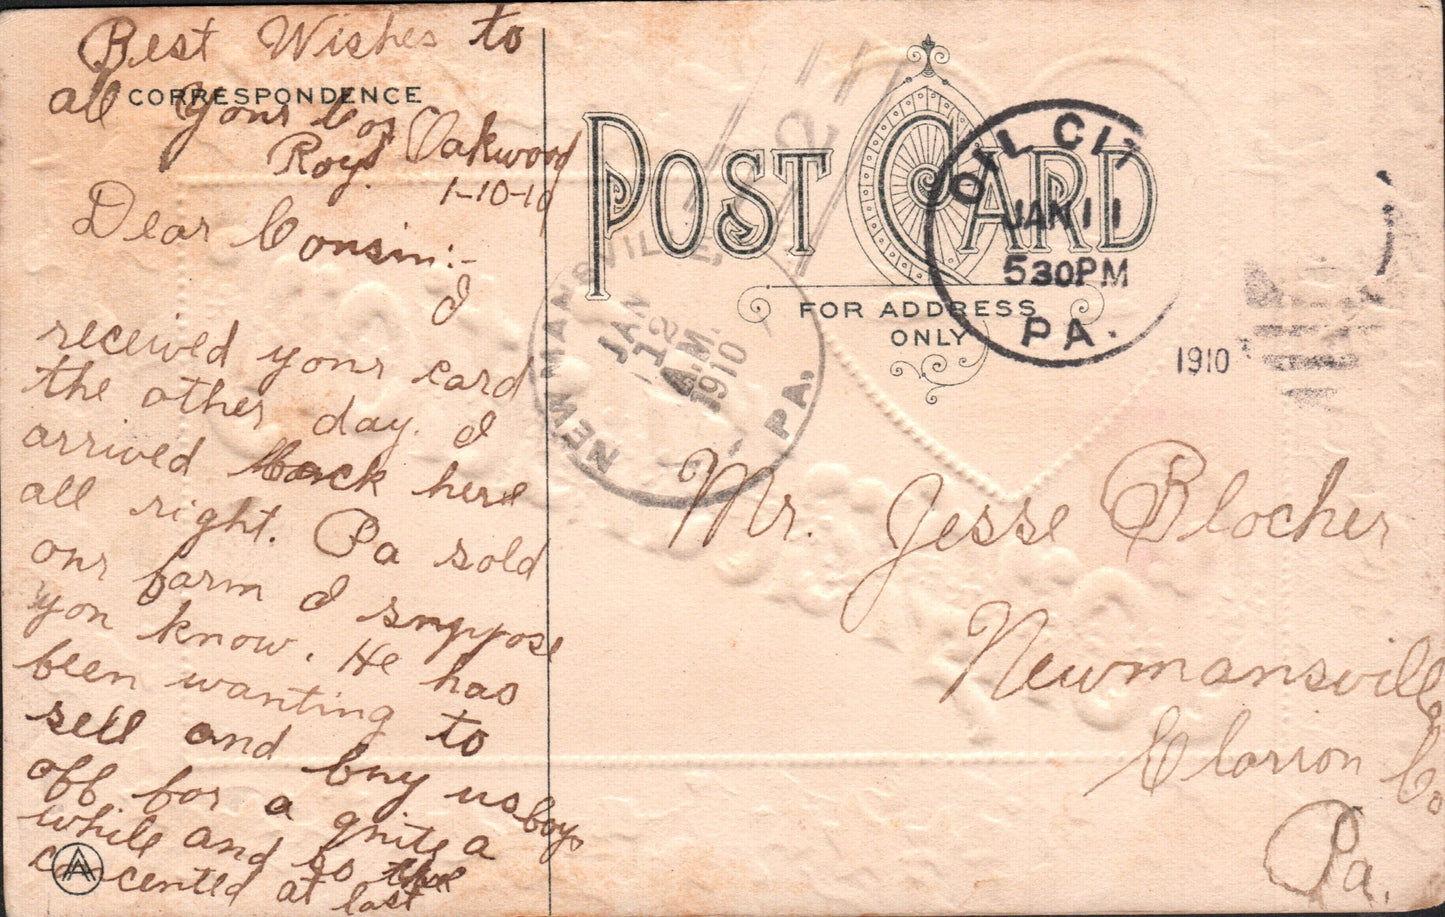 Best Wishes to
all
CORRESPONDENCE
your Coz
Roy.
Oakwood
1-10-10
Dear Cousin:-
I
received your card
the other day. I
arrived back here
all right. Pa sold
our farm I suppose
you know. He has
been wanting to
sell and buy us boys
off for a quite a
while and so the
concented at last
POST CARD
FOR ADDRESS
ONLY
OIL CITY
JAN 11
530PM
PA.
1910
NEWMANSVILLE,
JAN
12
A.M.
1910
PA.
Mr. Jesse Blocher
Newmansville
Clarion Co
Pa.